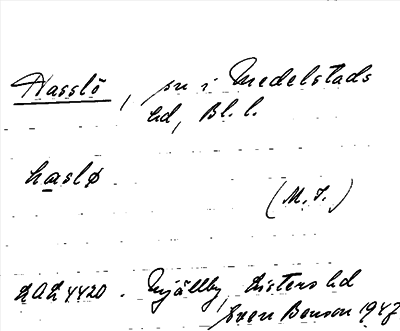 Hasslö, sn i Medelstads
hd, Bl. l.
haslø
(M. T.)
DAL 4420. Mjällby, Listers hd
Sven Benson 1947